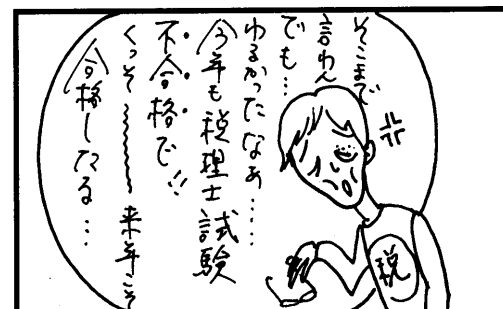 そこまで
言わん
でも…
わるかったなぁ……
今年も税理士試験
不合格で!!
くっそ〜〜〜来年こそ
合格したる…
税